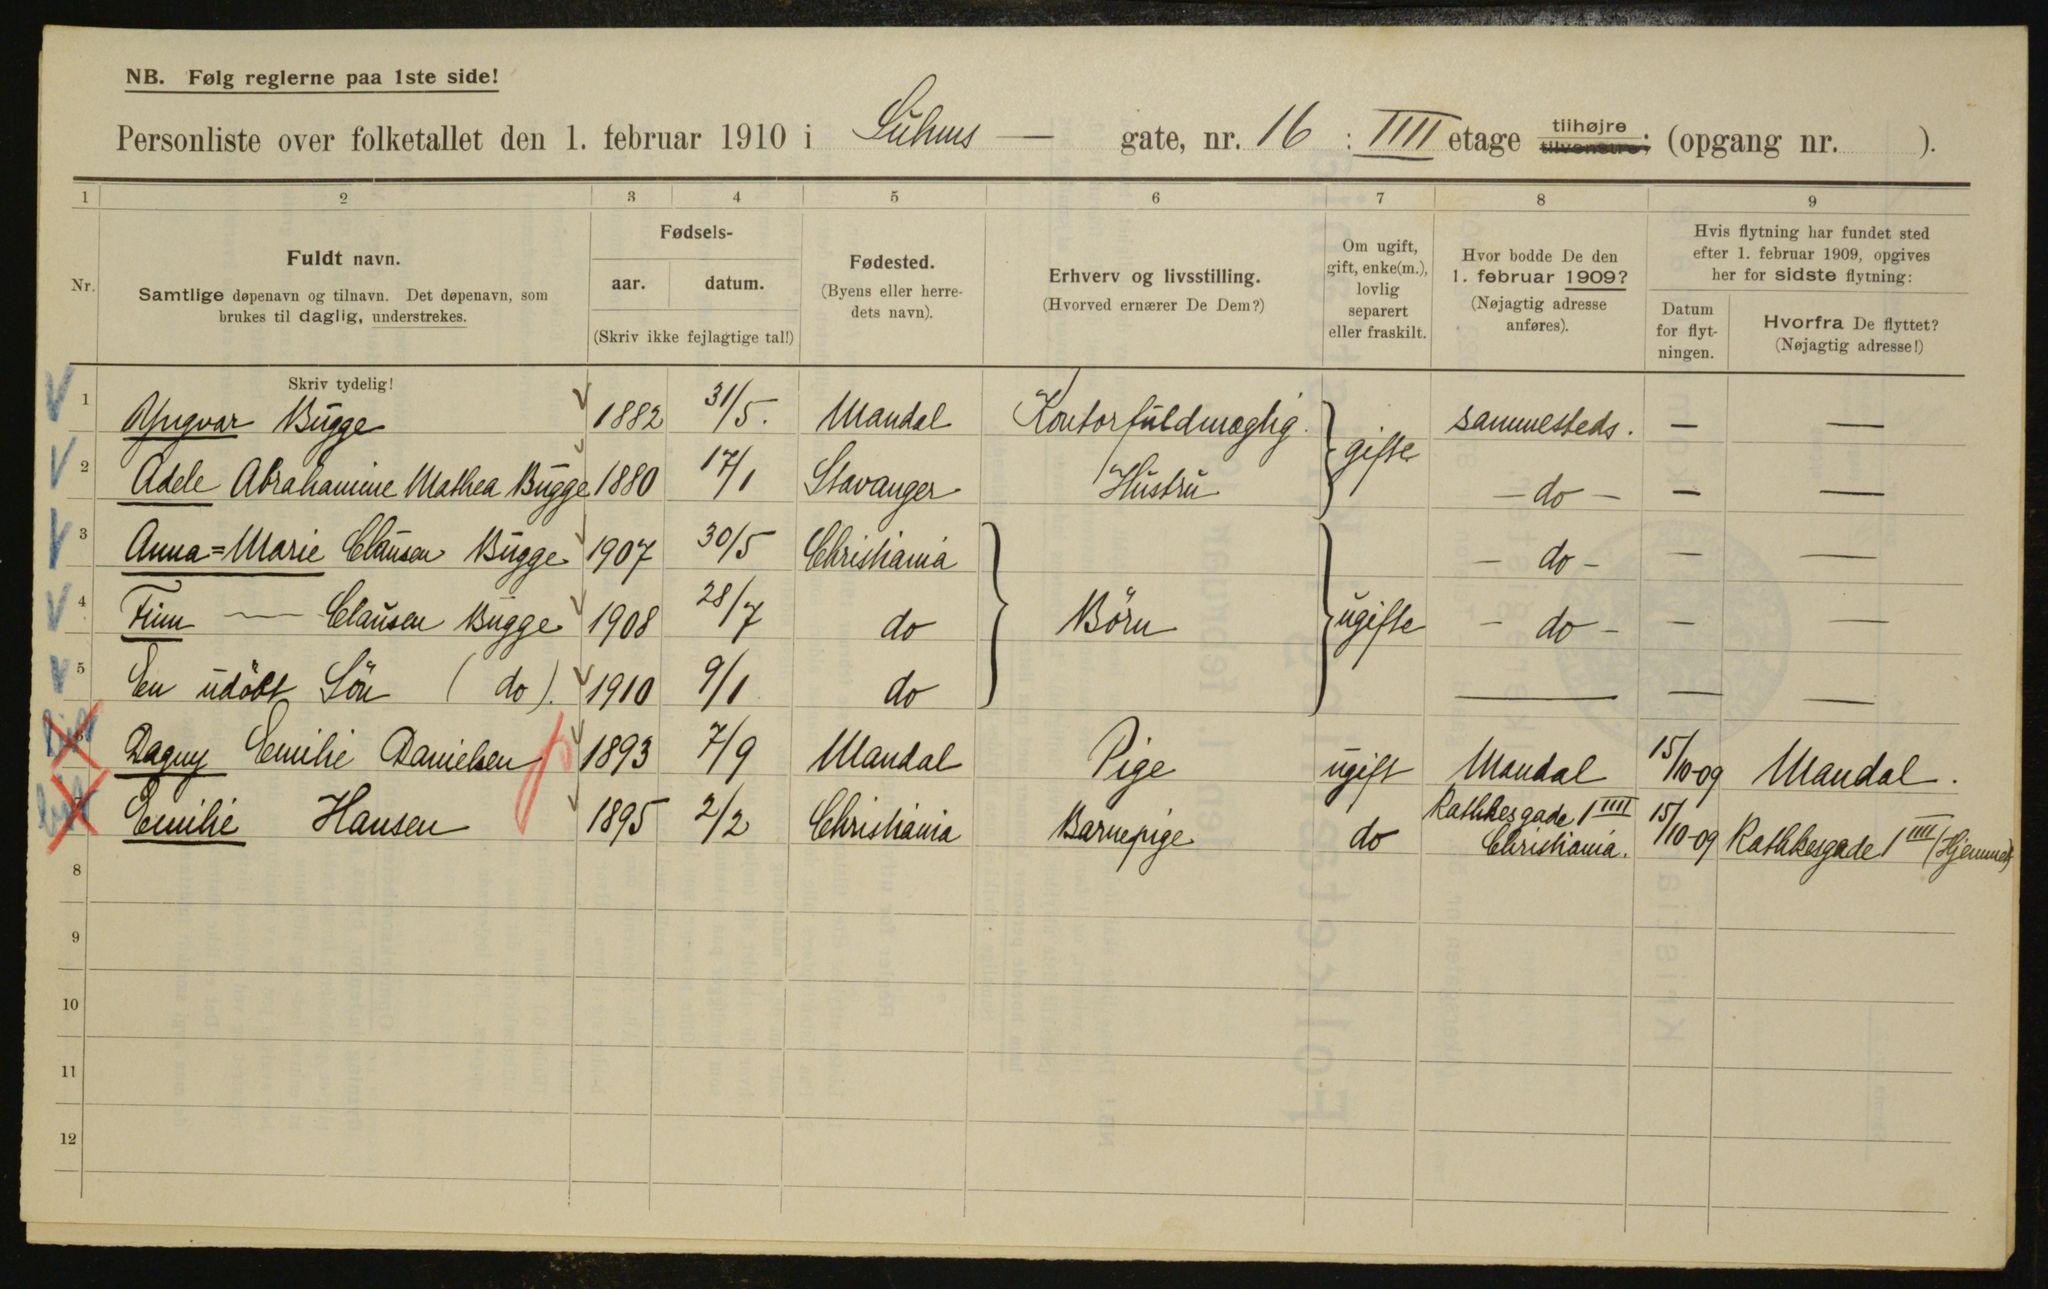 NB. Følg reglerne paa 1ste side!
Personliste over folketallet den 1. februar 1910 i Suhms — gate, nr. 16 : IIII etage tilhøjre tilvenstre; (opgang nr. ).
1 2 3 4 5 6 7 8 9
Nr.
Fuldt navn.
Samtlige døpenavn og tilnavn. Det døpenavn, som
brukes til daglig, understrekes.
Skriv tydelig!
Fødsels-
aar. datum.
(Skriv ikke fejlagtige tal!)
Fødested.
(Byens eller herre-
dets navn).
Erhverv og livsstilling.
(Hvorved ernærer De Dem?)
Om ugift,
gift, enke(m.),
lovlig
separert
eller fraskilt.
Hvor bodde De den
1. februar 1909?
(Nøjagtig adresse
anføres).
Hvis flytning har fundet sted
efter 1. februar 1909, opgives
her for sidste flytning:
Datum
for flyt-
ningen.
Hvorfra De flyttet?
(Nøjagtig adresse!)
1 Yngvar Bugge 1882 31/5. Mandal Kontorfuldmægtig. gifte sammesteds. — —
2 Adele Abrahamine Mathea Bugge 1880 17/1 Stavanger Hustru — do — — —
3 Anna=Marie Clausen Bugge 1907 30/5 Christiania — do — — —
4 Finn — Clausen Bugge 1908 28/7 do Börn ugifte — do — — —
5 En udöbt Sön ( do ). 1910 9/1 do — — —
6 Dagny Emilie Danielsen 1893 7/9 Mandal Pige ugift Mandal 15/10-09 Mandal.
7 Emilie Hansen 1895 2/2 Christiania Barnepige do Rathkesgade 1 IIII Christiania. 15/10-09 Rathkesgade 1 IIII (Hjemmet)
8
9
10
11
12